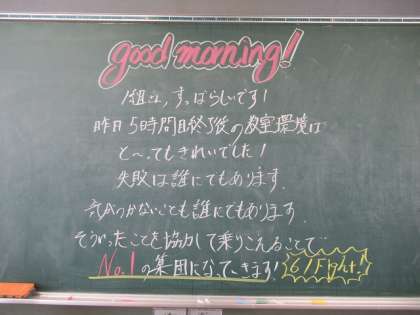 good morning!
1組さん、すっばらしいです！
昨日5時間目終了後の教室環境は
と〜ってもきれいでした！
失敗は誰にでもあります。
気がつかないことも誰にでもあります。
そういったことを協力して乗りこえることで
No.1の集団になっていきます!